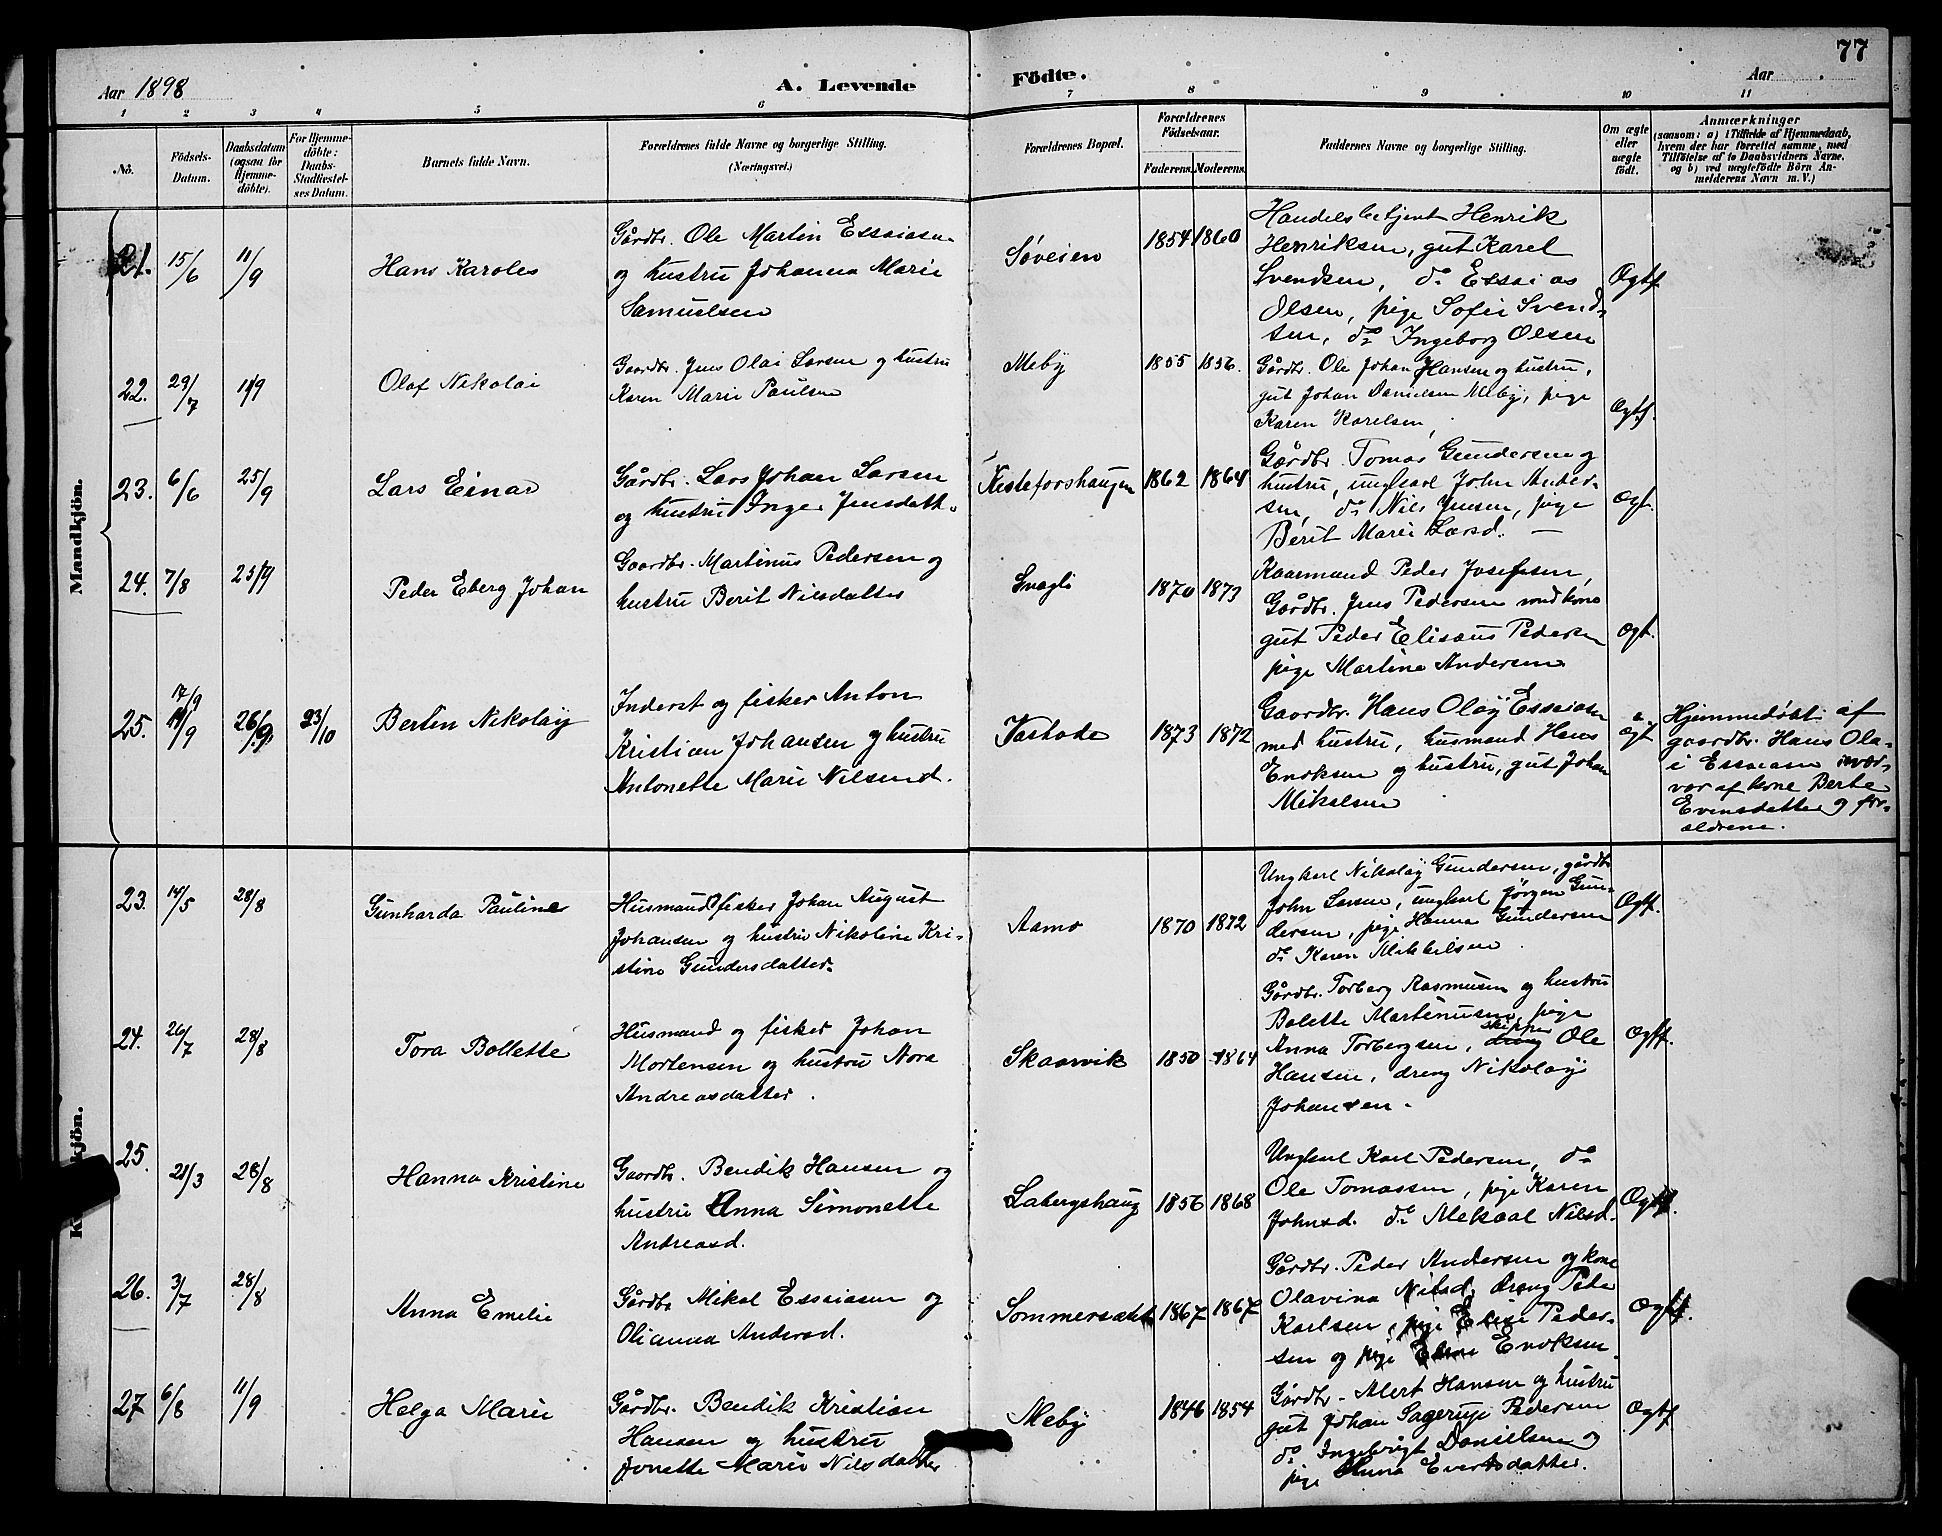 77
Aar 1898
A. Levende
Födte.
Aar
1 2 3 4 5 6 7 8 9 10 11
No.
Födsels-
Datum.
Daabsdatum
(ogsaa for
Hjemme-
döbte).
For Hjemme-
döbte:
Daabs-
Stadfæstel-
ses Datum.
Barnets fulde Navn.
Forældrenes fulde Navne og borgerlige Stilling.
(Næringsvei.)
Forældrenes Bopæl.
Forældrenes
Födselsaar.
Faderens. Moderens.
Faddernes Navne og borgerlige Stilling.
Om ægte
eller
uægte
født.
Anmærkninger
(saasom: a) i Tilfælde af Hjemmedaab,
hvem der har forrettet samme, med
Tilföielse af to Daabsvidners Navne,
og b) ved uægtefödte Börn An-
melderens Navn m. V.)
Mandkjön.
21. 15/6 11/9
Hans Karoles
Gårdbr. Ole Martin Essaiasen
og hustru Johanna Marie
Samuelsen
Søveien
1854 1860
Handelsbetjent Henrik
Henriksen, gut Karel
Svendsen, do Essaias
Olsen, pige Sofie Svend-
sen, do Ingeborg Olsen
Ægtf.
22. 29/7 11/9
Olaf Nikolai
Gaardbr. Jens Olai Larsen og hustru
Karen Marie Paulsen
Meby
1855 1856.
Gårdbr. Ole Johan Hansen og hustru,
gut Johan Danielsen Meby, pige
Karen Karelsen,
Ægtf.
23. 6/6 25/9
Lars Einar
Gårdbr. Lars Johan Larsen
og hustru Inger Jensdatt.
Kisteforshaugen
1862 1864
Gårdbr. Tomas Gundersen og
hustru, ungkarl John Ander-
sen, do Nils Jensen, pige
Berit Marie Larsd.
Ægt.
24. 7/8 25/9
Peder Eberg Johan
Gaardbr. Martinus Pedersen og
hustru Berit Nilsdatter
Snagli
1870 1873
Kaarmand Peder Josefsen,
Gårdbr. Jens Pedersen med kone
gut Peder Elisæus Pedersen
pige Martine Andersen
Ægt.
25. 17/9 26/9 23/10
Bertin Nikolay
Inderst og fisker Anton
Kristian Johansen og hustru
Antonette Marie Nilsend.
1873 1872
Gaardbr. Hans Olay Essaiasen
med hustru, husmand Hans
Enoksen og hustru, gut Johan
Mikalsen
ægt.
Hjemmedøbt af
gaardbr. Hans Ola-
i Essaiasen nær-
var af kone Berte
Evensdatter og for-
ældrene.
Kjön.
23. 14/5 28/8
Gunharda Pauline
Husmand fisker Johan August
Johansen og hustru Nikoline Kri-
stine Gundersdatter.
Aamo
1870 1872
Ungkarl Nikolay Gundersen, gårdbr
John Larsen, ungkarl Jørgen Gun-
dersen, pige Hanna Gundersen
do Karen Mikkelsen
Ægtf.
24. 26/7 28/8
Tora Bollette
Husmand og fisker Johan
Mortensen og hustru Nora
Andreasdatter.
Skaarvik
1850 1864
Gårdbr. Torberg Rasmusen og hustru
Bolette Martinusen, pige
Anna Torbergsen, skipper Ole
Hansen, dreng Nikolay
Johansen.
Ægtf.
25. 21/3 28/8
Hanna Kristine
Gaardbr. Bendik Hansen og
hustru Anna Simonette
Andreasd.
Labergshaug
1856 1868
Ungkarl Karl Pedersen, do
Ole Tomassen, pige Karen
Johnsd. do Mekaal Nilsd.
Ægtf.
26. 3/7 28/8
Anna Emelie
Gårdbr Mikal Essaiasen og
Olianna Andersd.
Sommersædet
1867 1867
Gårdbr. Peder Andersen og kone
Olavina Nilsd, dreng Peder
Karlsen, pige Elise Peder-
sen og pige Enoksen.
Ægtf.
27 6/8 11/9
Helga Marie
Gårdbr. Bendik Kristian
Hansen og hustru
Jonette Marie Nilsdatter
Meby
1846 1854
Gårdbr. Mert Hansen og hustru
gut Johan Sagerup Pedersen
do Ingebrigt Danielsen og
pige Anna Evertsdatter.
Ægtf.